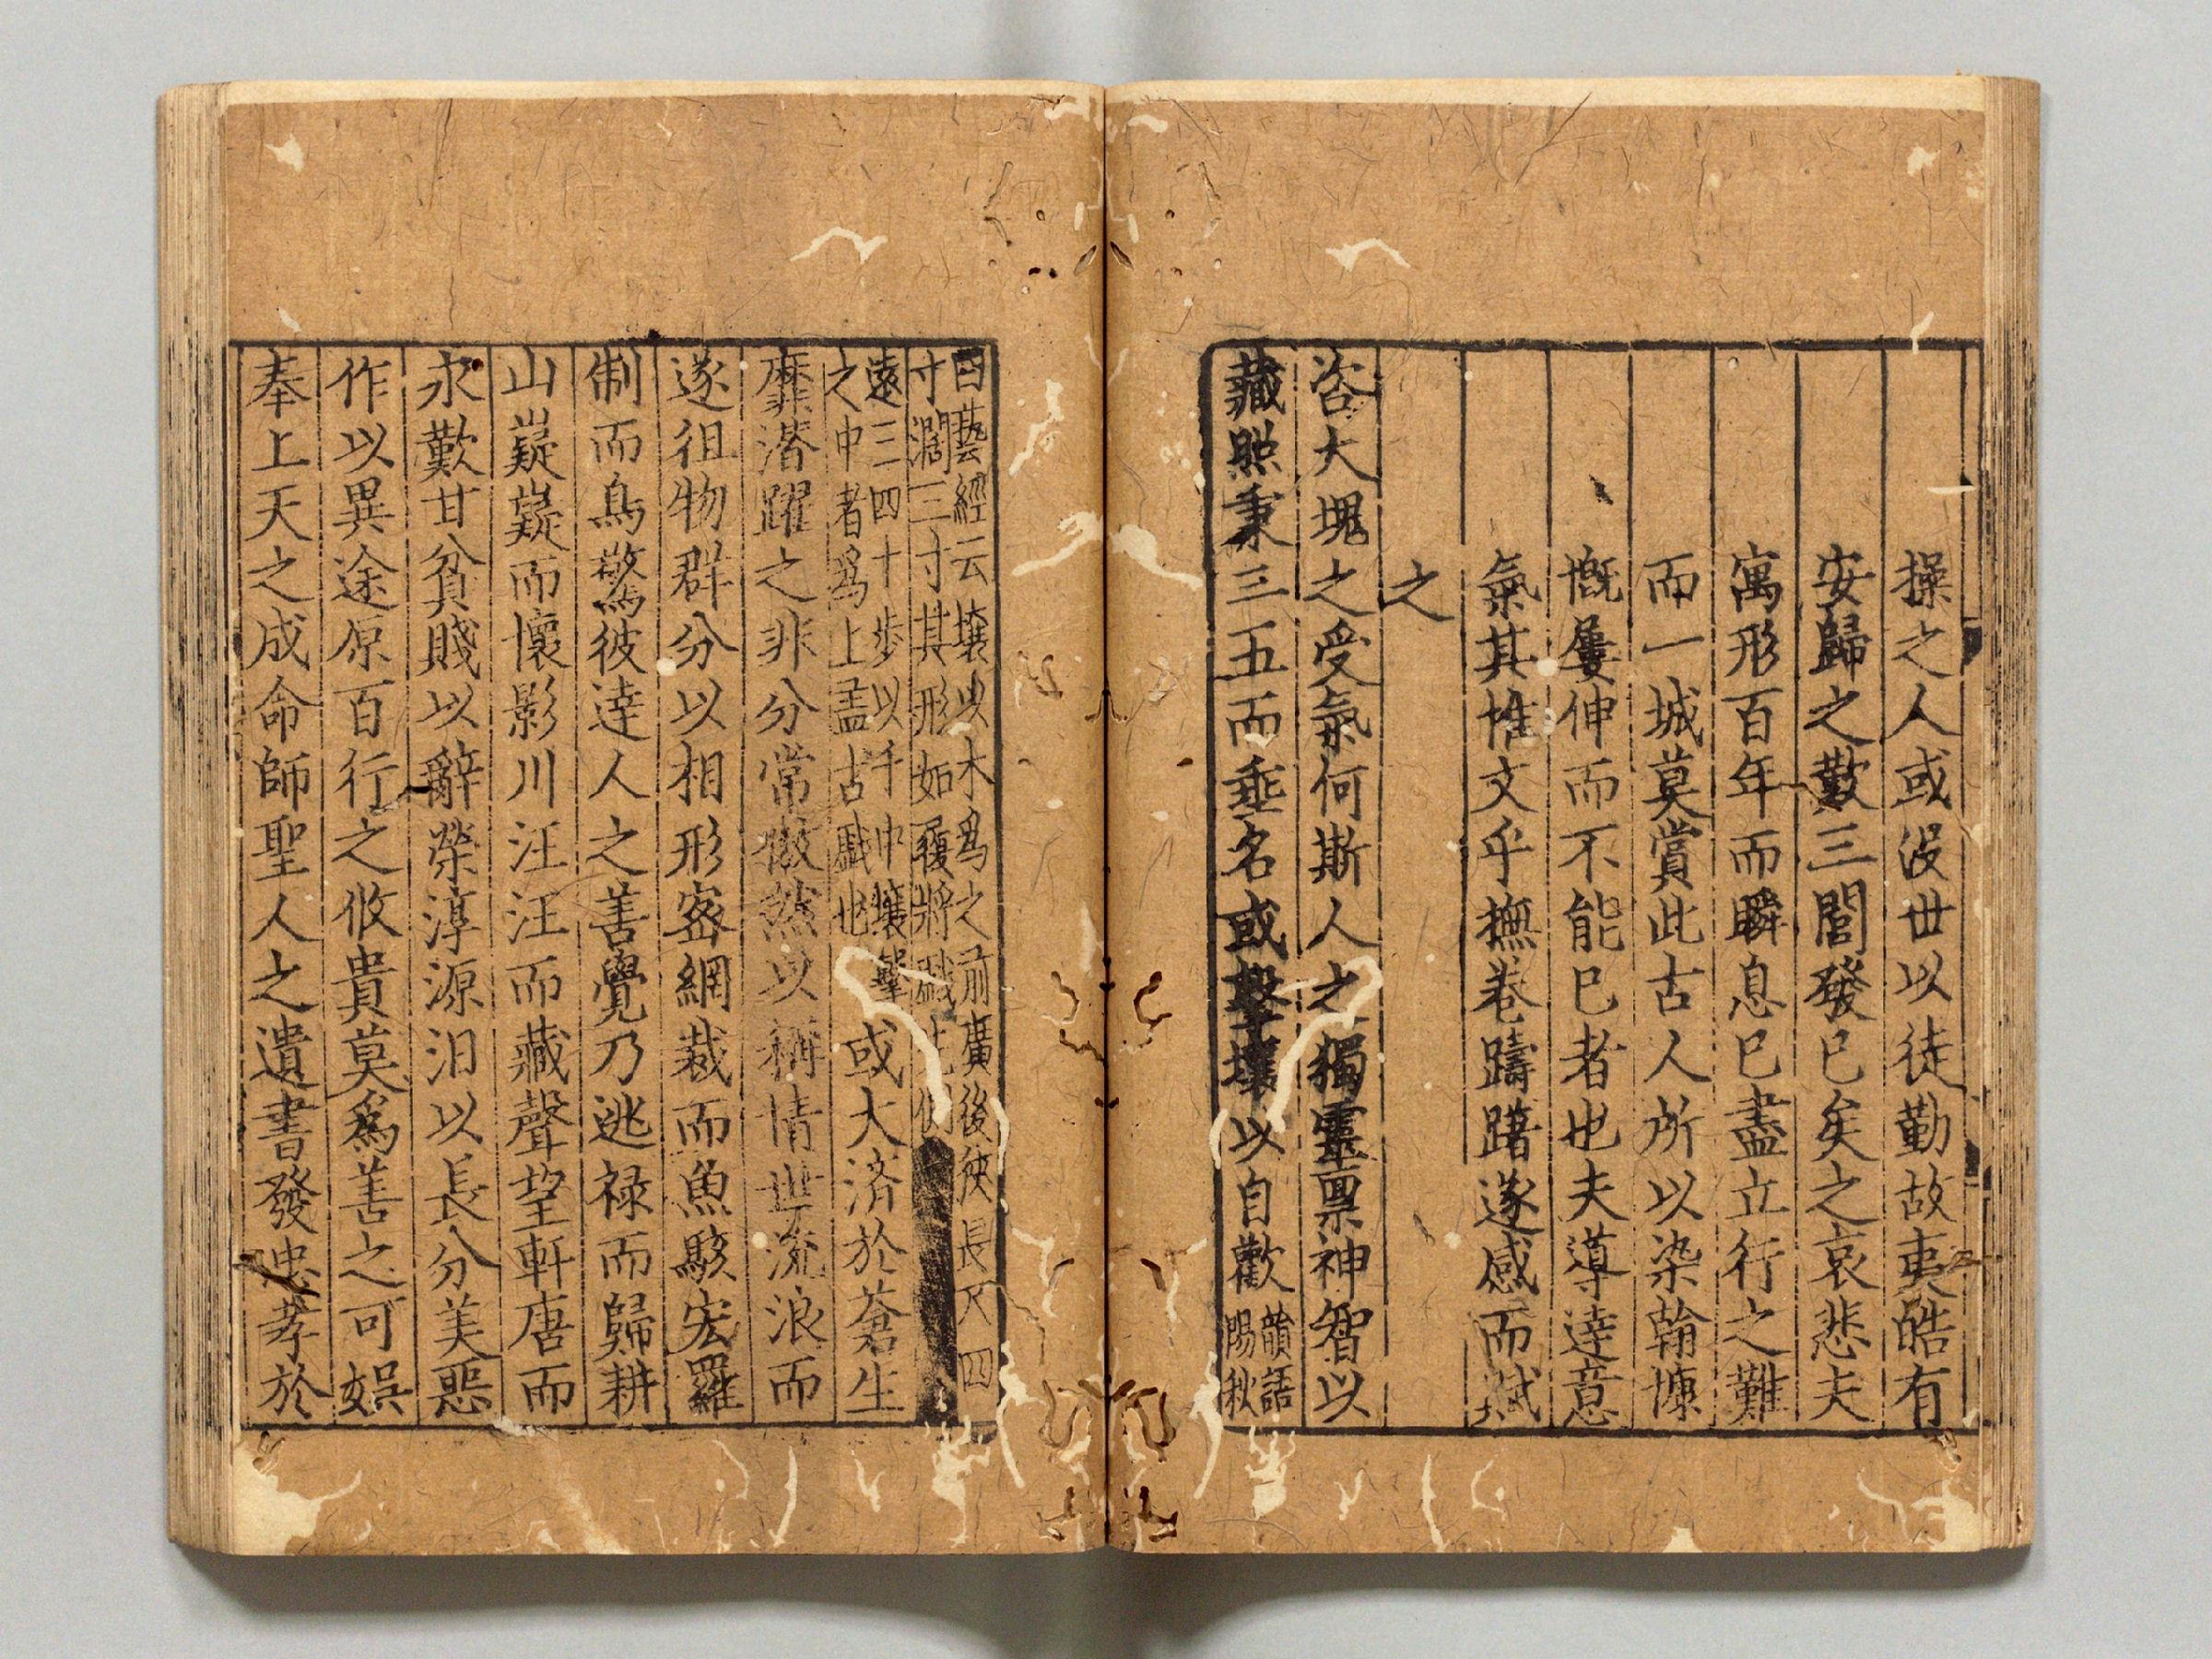 操之人或没世以徒勤故夷皓有
安歸之歎三閭發已矣之哀悲夫
寓形百年而瞬息已盡立行之難
而一城莫賞此古人所以染翰慷
慨屢伸而不能已者也夫導達意
氣其惟文乎撫卷躊躇遂感而賦
之
咨大塊之受氣何斯人之獨靈禀神智以
藏照秉三五而垂名或擊壤以自歡
韻語
陽秋
曰藝經云壤以木為之前廣後狹長尺四
寸濶三寸其形如履將戲先側
遠三四十步以手中壤擊
之中者為上盖古戲也
或大済於蒼生
靡潜躍之非分常傲然以稱情世流浪而
遂徂物群分以相形密網裁而魚駭宏羅
制而鳥驚彼達人之善覺乃逃禄而歸耕
山嶷嶷而懷影川汪汪而藏聲望軒唐而
永歎甘貧賤以辭榮淳源汩以長分美惡
作以異途原百行之攸貴莫為善之可娯
奉上天之成命師聖人之遺書發忠孝於